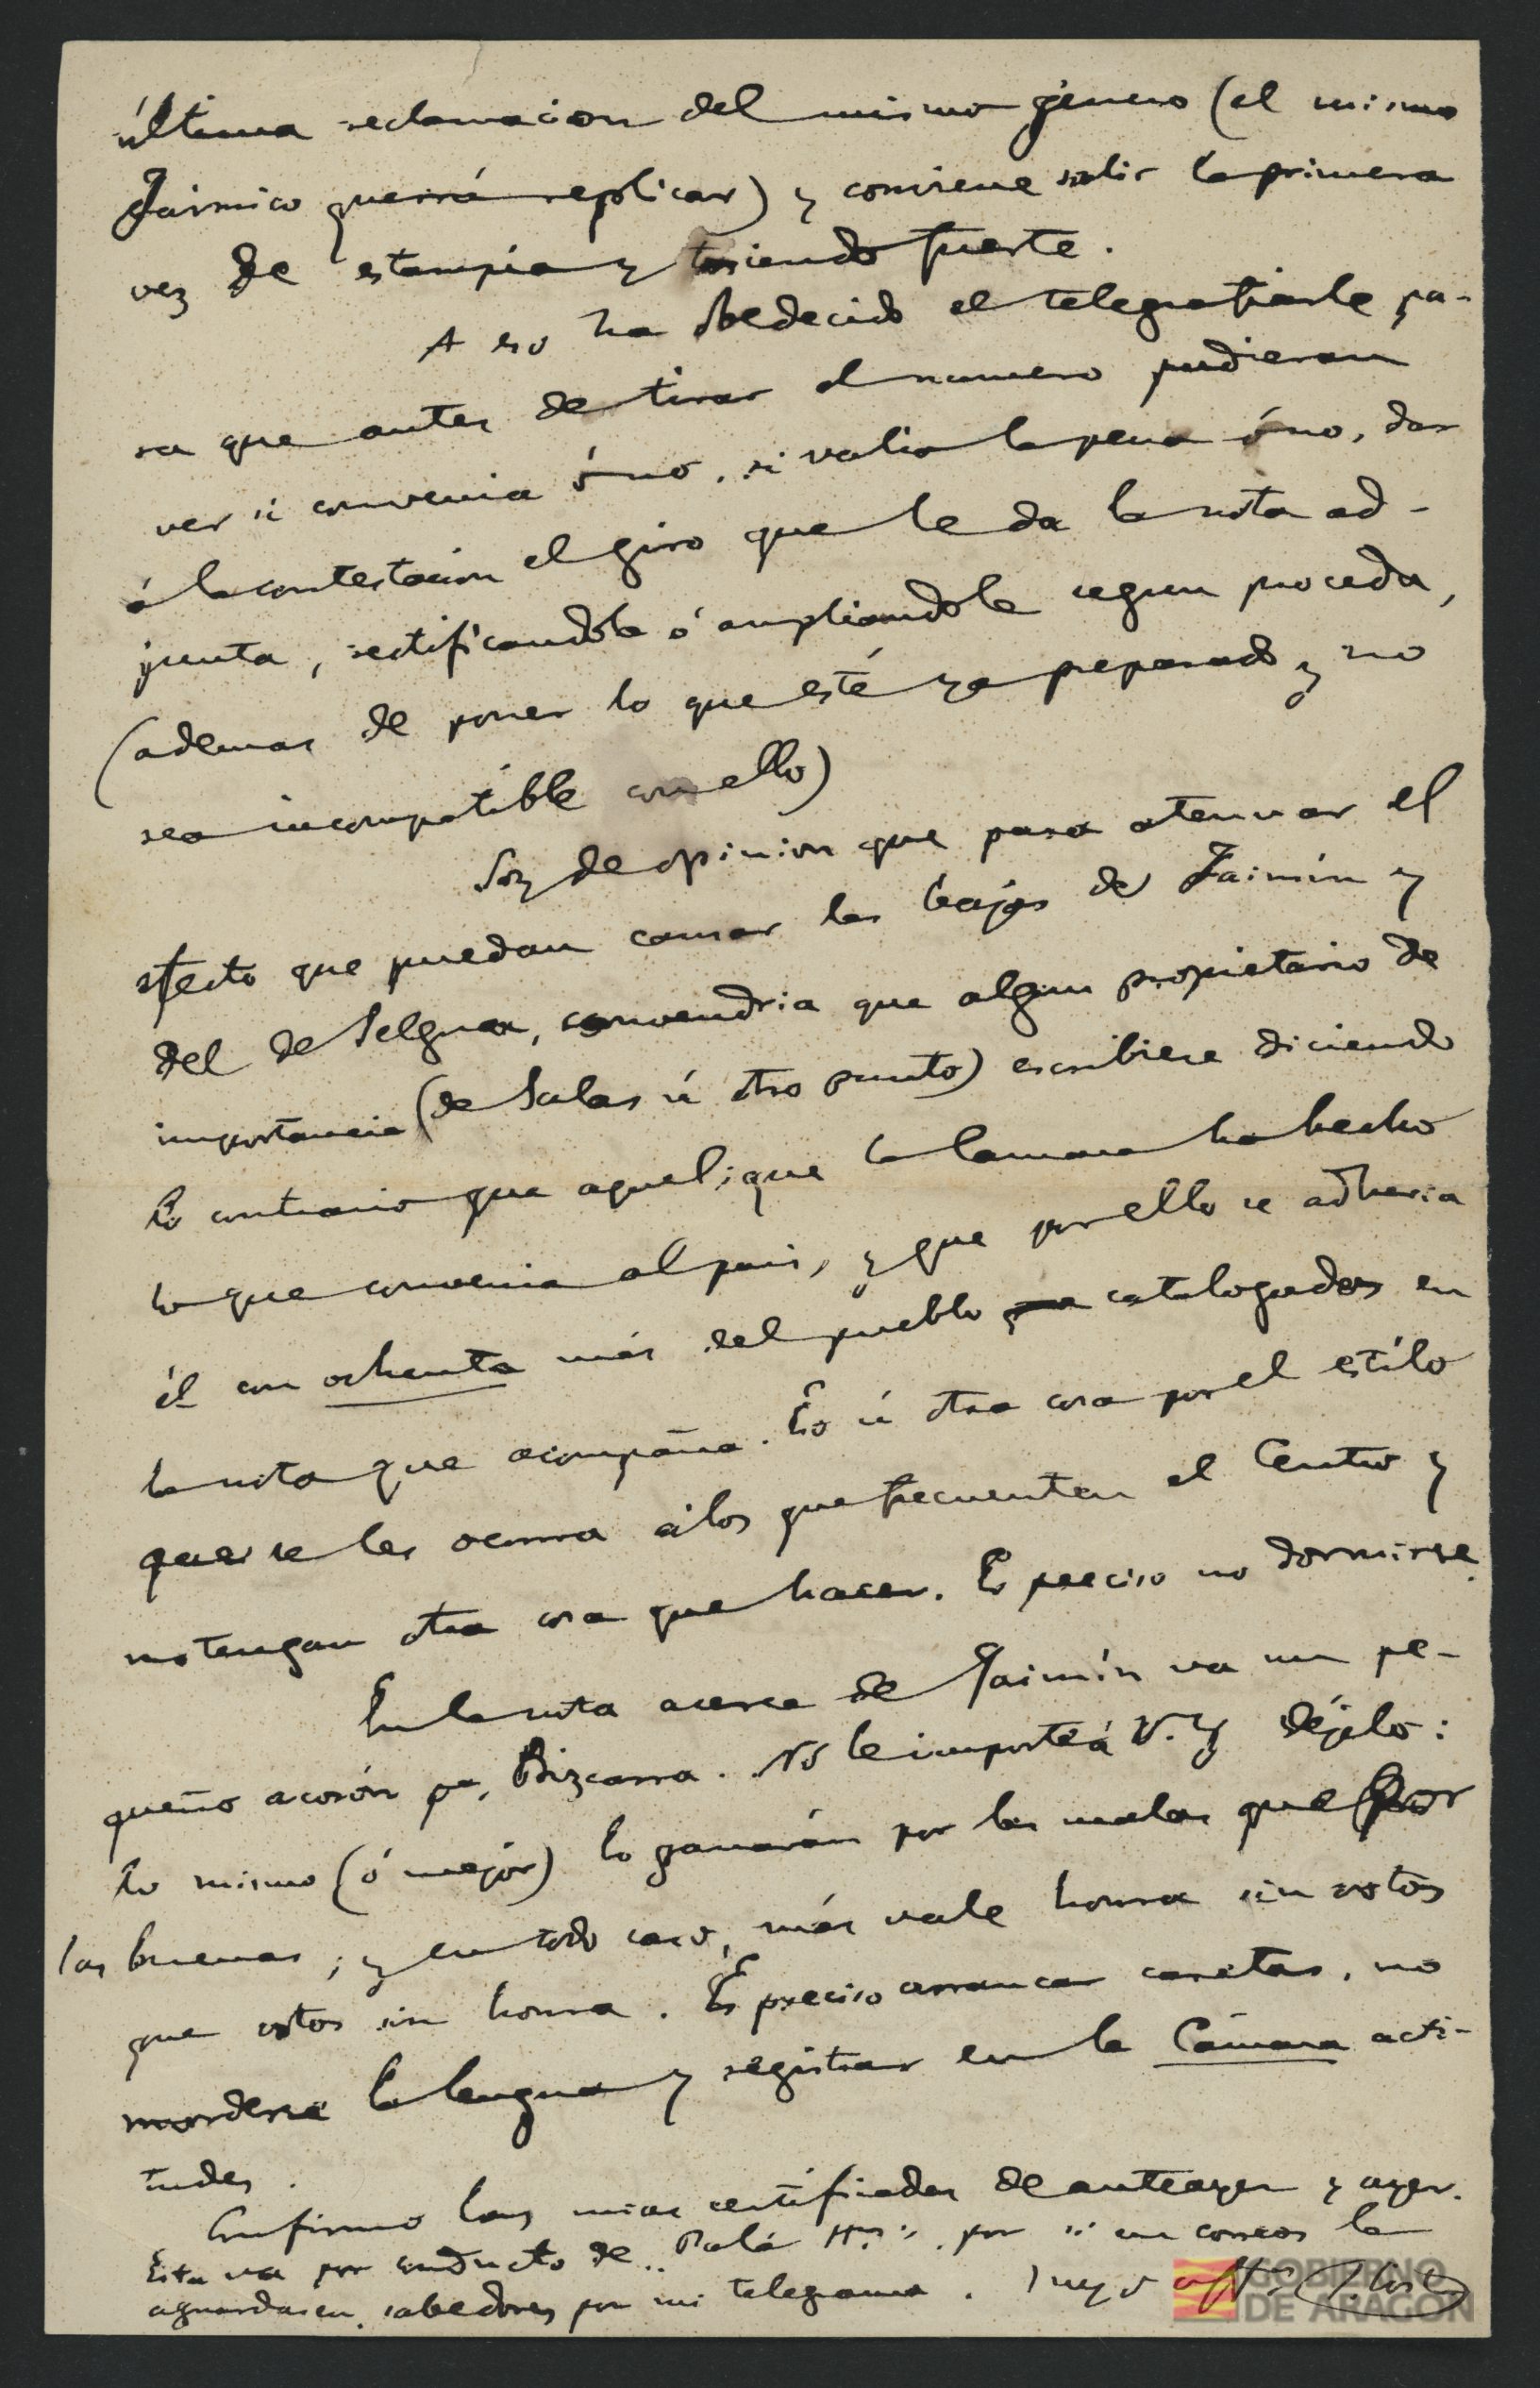 última reclamacion del mismo género (el mismo
Jaimico querrá replicar) y conviene salir la primera
vez de estampía y tosiendo fuerte.
A eso ha obedecido el telegrafiarle pa-
ra que antes de tirar el numero pudieran
ver si convenia ó no, si valia la pena ó no, dar
á la contestacion el giro que le da la nota ad-
junta, rectificandola ó ampliandola segun proceda,
(ademas de poner lo que esté ya preparado y no
sea incompatible con ello)
Soy de opinion que para atenuar el
efecto que puedan causar las bajas de Jaimín y
del de Selgua, convendria que algun propietario de
importancia (de Salas ú otro punto) escribiese diciendo
lo contrario que aquel; que la Camara ha hecho
lo que convenia al pais, y que por ello se adheria
él con ochenta más del pueblo catalogados en
la nota que acompaña. Eso ú otra cosa por el estilo
que se les ocurra á los que frecuenten el Centro y
no tengan otra cosa que hacer. Es preciso no dormirse.
En la nota acerca de Jaimín va un pe-
queño acosón pa. Bizcarra. No le importe á V. y déjelo:
lo mismo (ó mejor) lo ganarán por las malas que por
las buenas; y en todo caso, más vale honra sin votos
que votos sin honra. Es preciso arrancar caretas, no
morderse la lengua y registrar en la Cámara acti-
tudes.
Confirmo las mias certificadas de anteayer y ayer.
Esta va por conducto de Palá Hnos., por si en correos la
aguardasen, sabedores por mi telegrama. Suyo affmo J. Costa
GOBIERNO
DE ARAGON